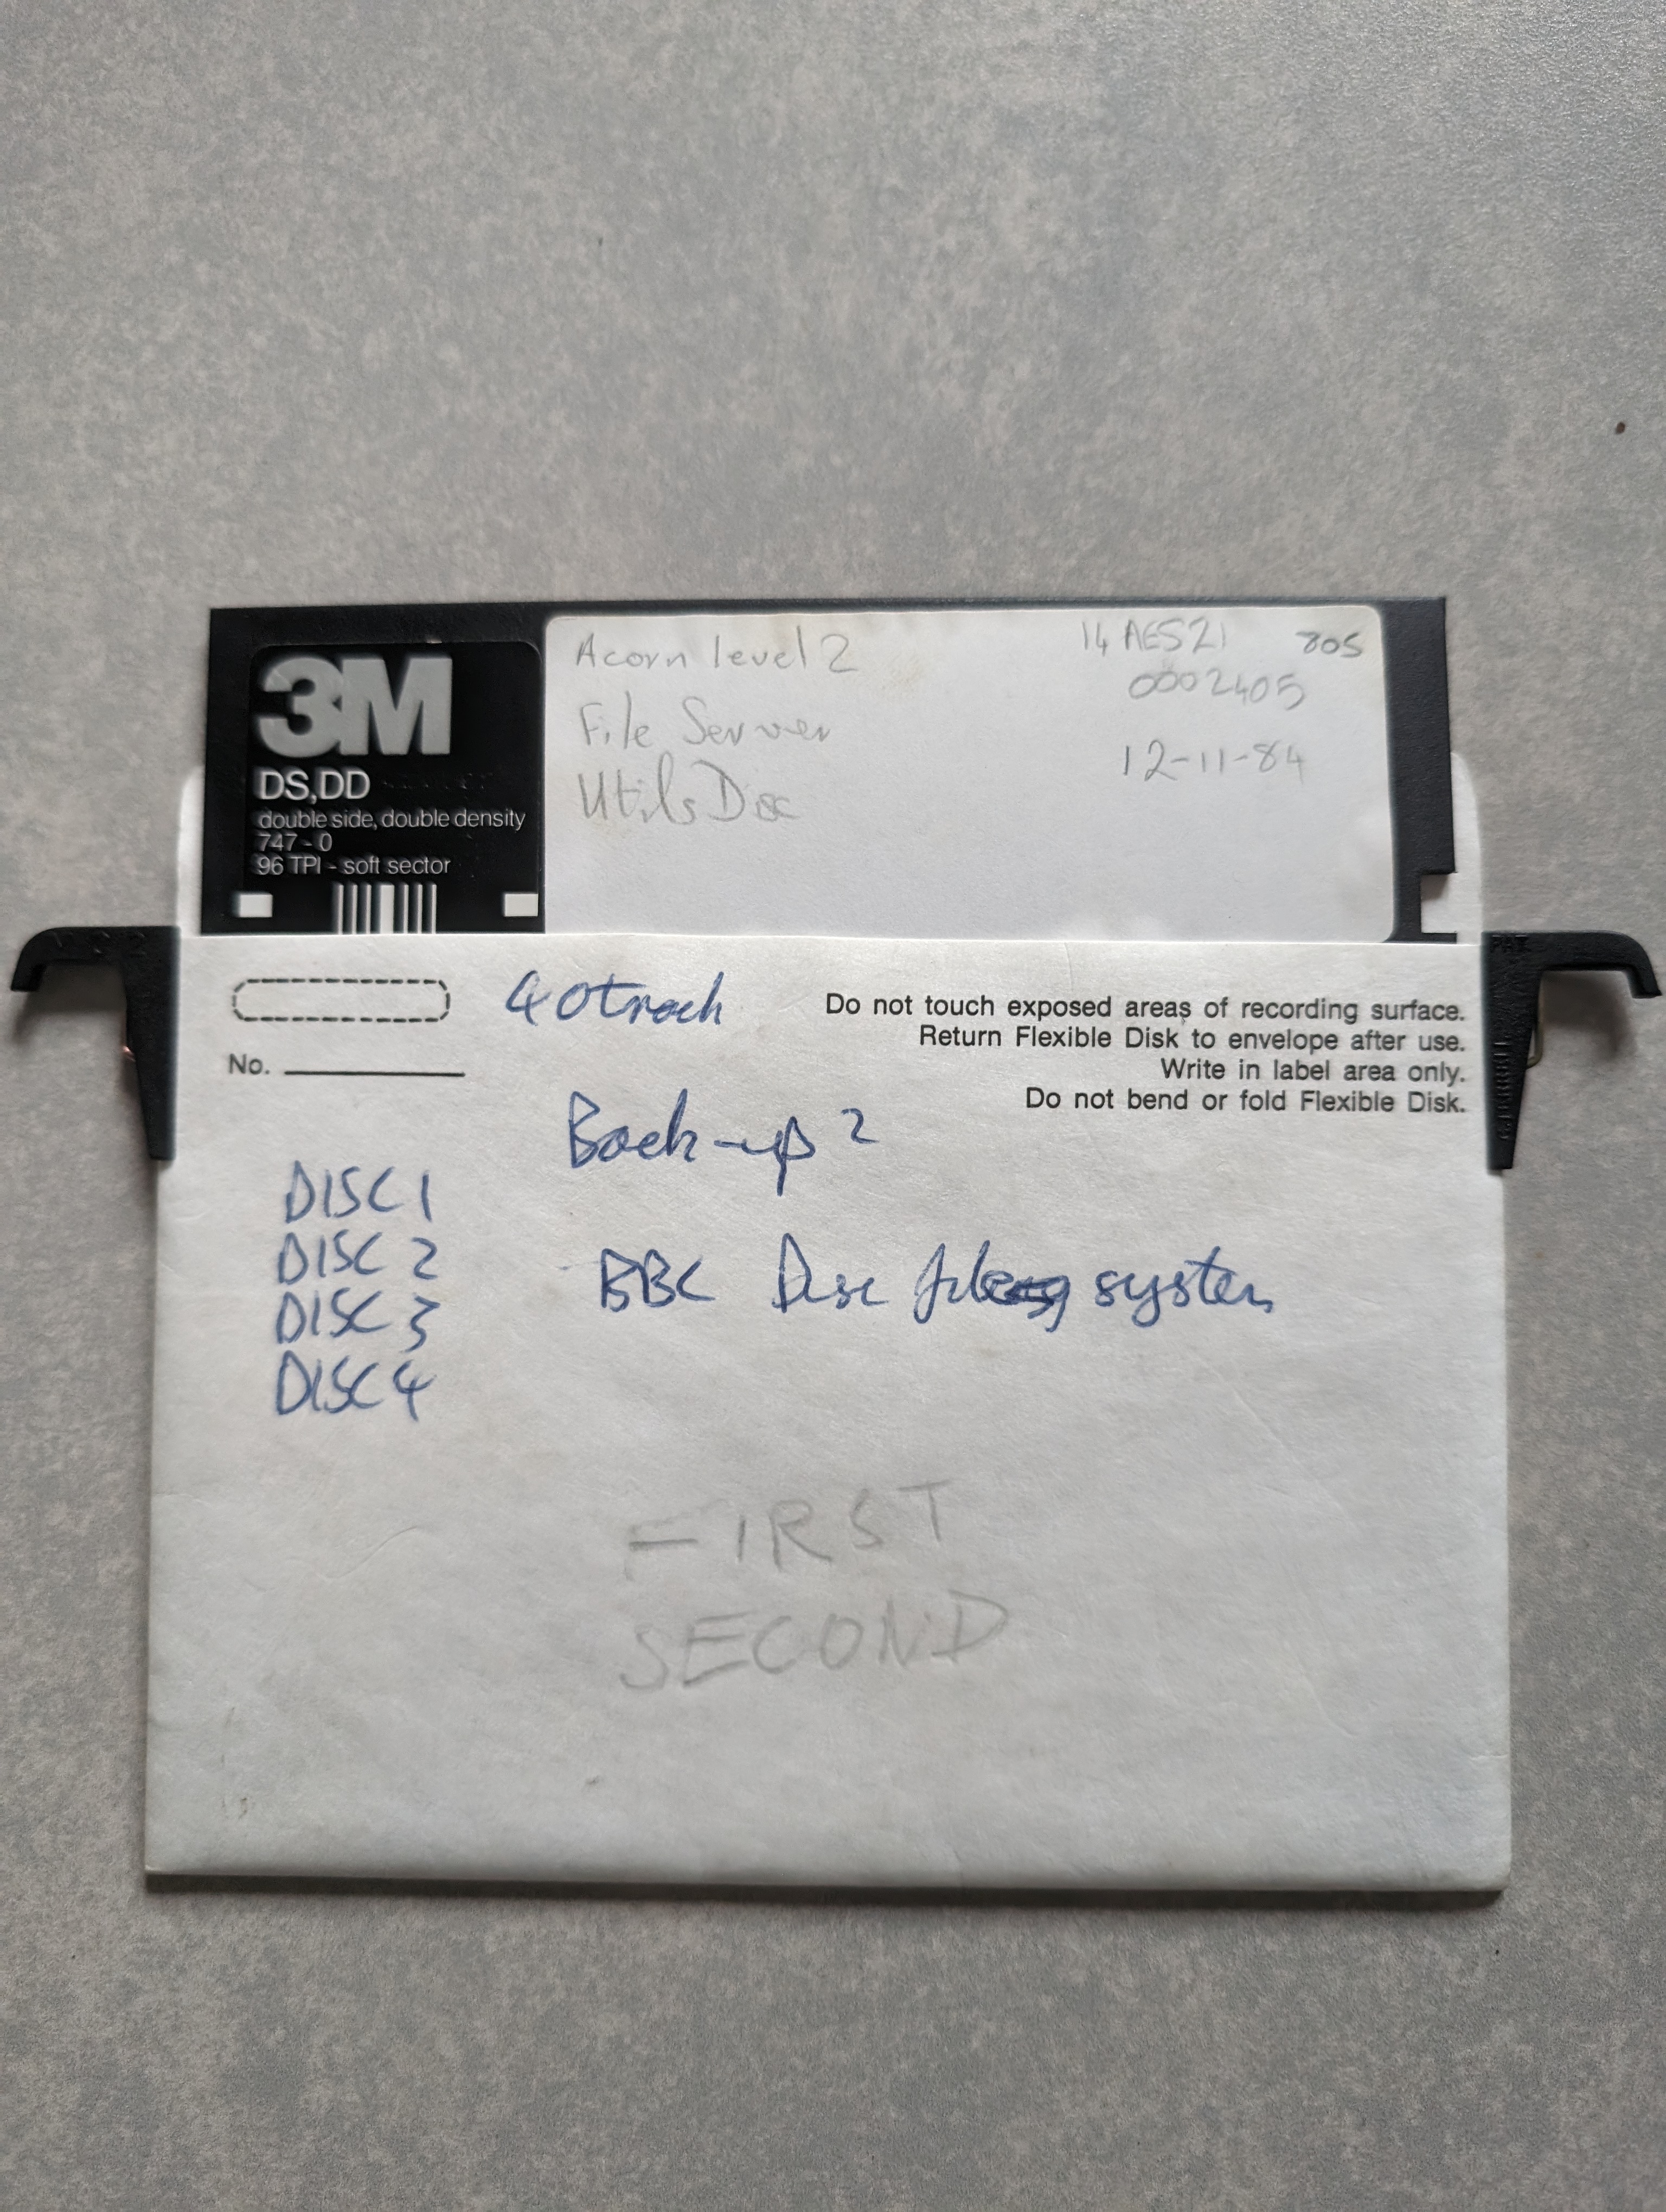 3M
DS,DD
double side, double density
747-0
96 TPI - soft sector
Acorn level 2
File Server
Utils Disc
14 AES21 80S
0002405
12-11-84
40track
No.
Do not touch exposed areas of recording surface.
Return Flexible Disk to envelope after use.
Write in label area only.
Do not bend or fold Flexible Disk.
Back-up 2
DISC 1
DISC 2
DISC 3
DISC 4
BBC Disc filing system
FIRST
SECOND